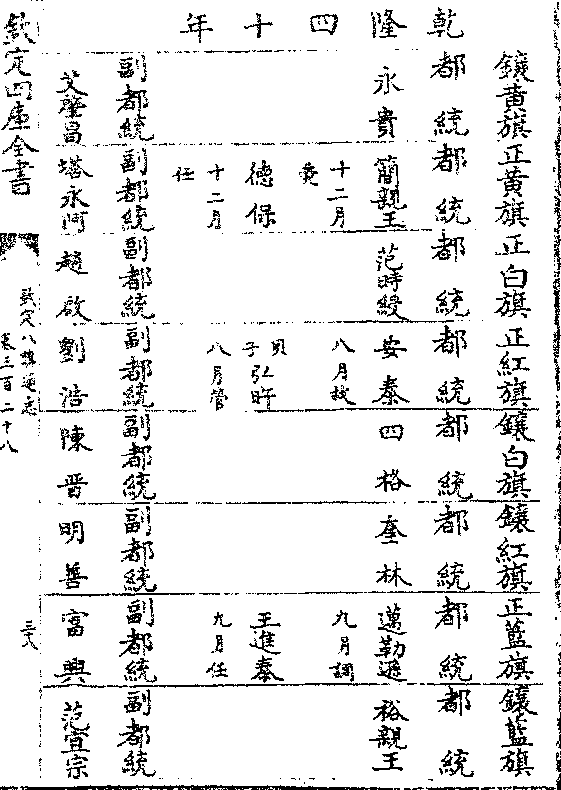 乾隆四十年
鑲黄旗 正黄旗 正白旗 正紅旗 鑲白旗 鑲紅旗 正藍旗 鑲藍旗
都統 都統 都統 都統 都統 都統 都統 都統
永貴 簡親王 范時綬 安泰 四格 奎林 邁勒遜 裕親王
十二月薨 八月故 九月調
德保 貝子弘旿 王進泰
十二月任 八月管 九月任
副都統 副都統 副都統 副都統 副都統 副都統 副都統 副都統
艾 昌 塔永阿 趙啟 劉浩 陳晋 明善 富興 范宜宗
欽定四庫全書
欽定八旗通志
卷三百二十八
三八